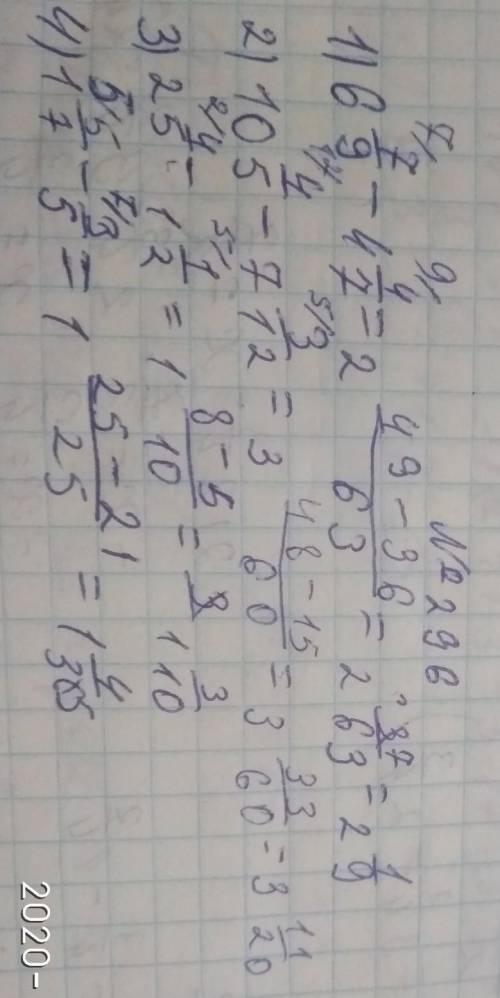 № 296
1) 6 7/9 - 4 4/7 = 2 (49-36)/63 = 2 7/63 = 2 1/9
2) 10 4/5 - 7 3/12 = 3 (48-15)/60 = 3 33/60 = 3 11/20
3) 2 4/5 - 1 1/2 = 1 (8-5)/10 = 1 3/10
4) 1 5/7 - 3/5 = 1 (25-21)/25 = 1 4/35
2020-